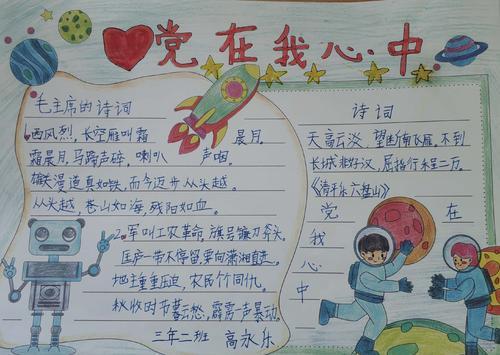 党在我心中
毛主席的诗词
1.西风烈,长空雁叫霜 晨月,
霜晨月,马蹄声碎,喇叭 声咽,
雄关漫道真如铁,而今迈步从头越。
从头越 苍山如海,残阳如血。
2.军叫工农革命,旗号镰刀斧头,
匡庐一带不停留要向潇湘直进
地主重重压迫,农民个个同仇。
秋收时节暮云愁,霹雳一声暴动。
三年二班 高永乐
诗词
天高云淡,望断南飞雁,不到
长城非好汉,屈指行程二万。
《清平乐六盘山》
党 在
我
心
中